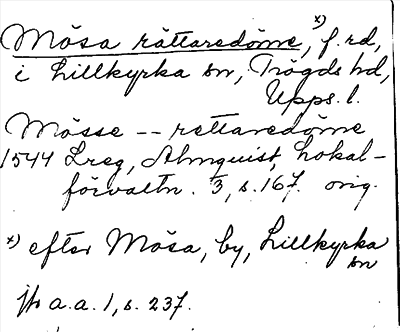 Mösa rättaredöme,ˣ⁾ f. rd,
i Lillkyrka sn, Trögds hd,
Upps. l.
Mösse -- rettaredöme
1544 Lreg, Almquist, Lokal-
förvaltn. 3, s. 167. orig.
ˣ⁾ efter Mösa, by, Lillkyrka
sn
jfr a.a. 1, s. 237.